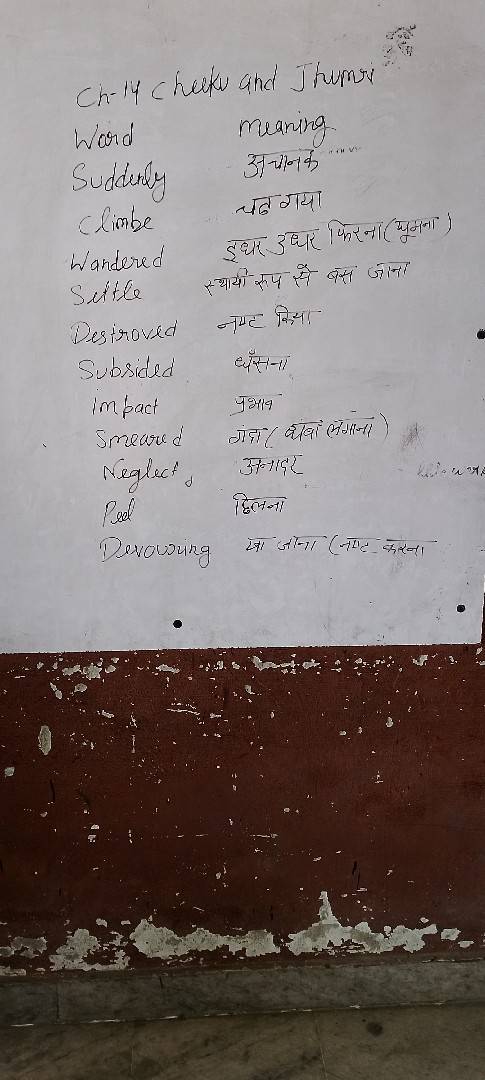 Ch-14 Cheeku and Jhumri
Word meaning
Suddenly अचानक
Climbe चढ गया
Wandered इधर उधर फिरना (घूमना)
Settle स्थायी रूप से बस जाना
Destroved नष्ट किया
Subsided धँसना
Impact प्रभाव
Smeared गंदा ( धब्बा लगाना)
Neglect अनादर
Peel छिलना
Devouring खा जाना (नष्ट करना